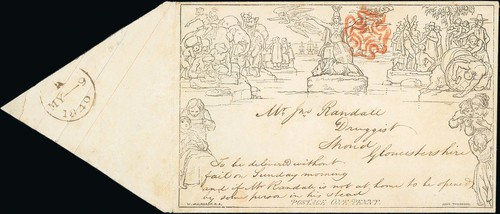 B
MY 9
1840
Mr Jas Randall
Druggist
Stroud
Gloucestershire
To be delivered without
fail on Sunday morning
and if Mr Randall is not at home to be opened
by some person in his stead
POSTAGE ONE PENNY.
W. MULREADY, R.A.
JOHN THOMPSON